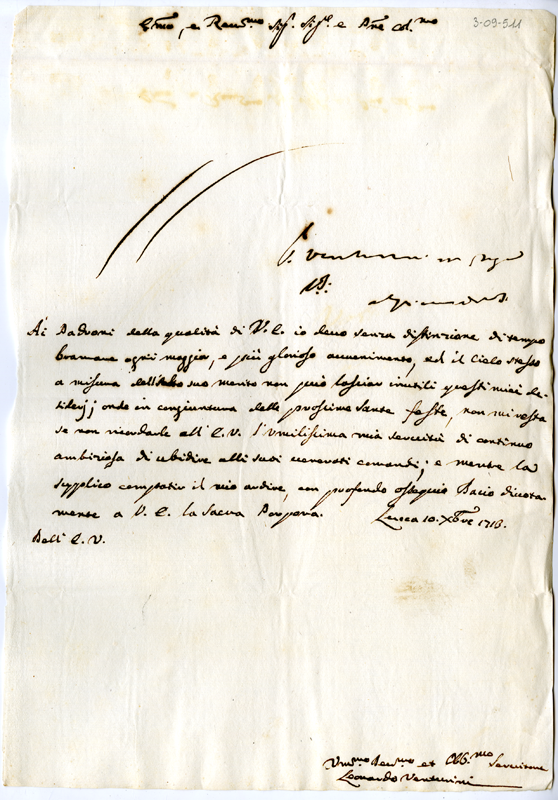 3-09-511
Em̃o, e Reu.mo Sig.r Sig.r e Pñe Col.mo
Ai Padroni della qualità di V. E. io deuo senza distinzione di tempo
bramare ogni maggior, e più glorioso auuenimento, ed il Cielo stesso
a misura dell' suo merito non può lasciar inutili questi miei de-
siderj; onde in congiuntura delle prossime Sante feste, non mi resta
se non ricordarle all' E. V. l'umilissima mia seruitù di continuo
ambiziosa di ubidire alli suoi uenerati comandi; e mentre la
supplico compatir il mio ardire, con profondo ossequio Bacio diuota-
mente a V. E. la Sacra Porpora. Lucca 10. Xbre 1718.
Dell' E. V.
Vm̃mo Deu.mo et Obb.mo Seruitore
Leonardo Venturini